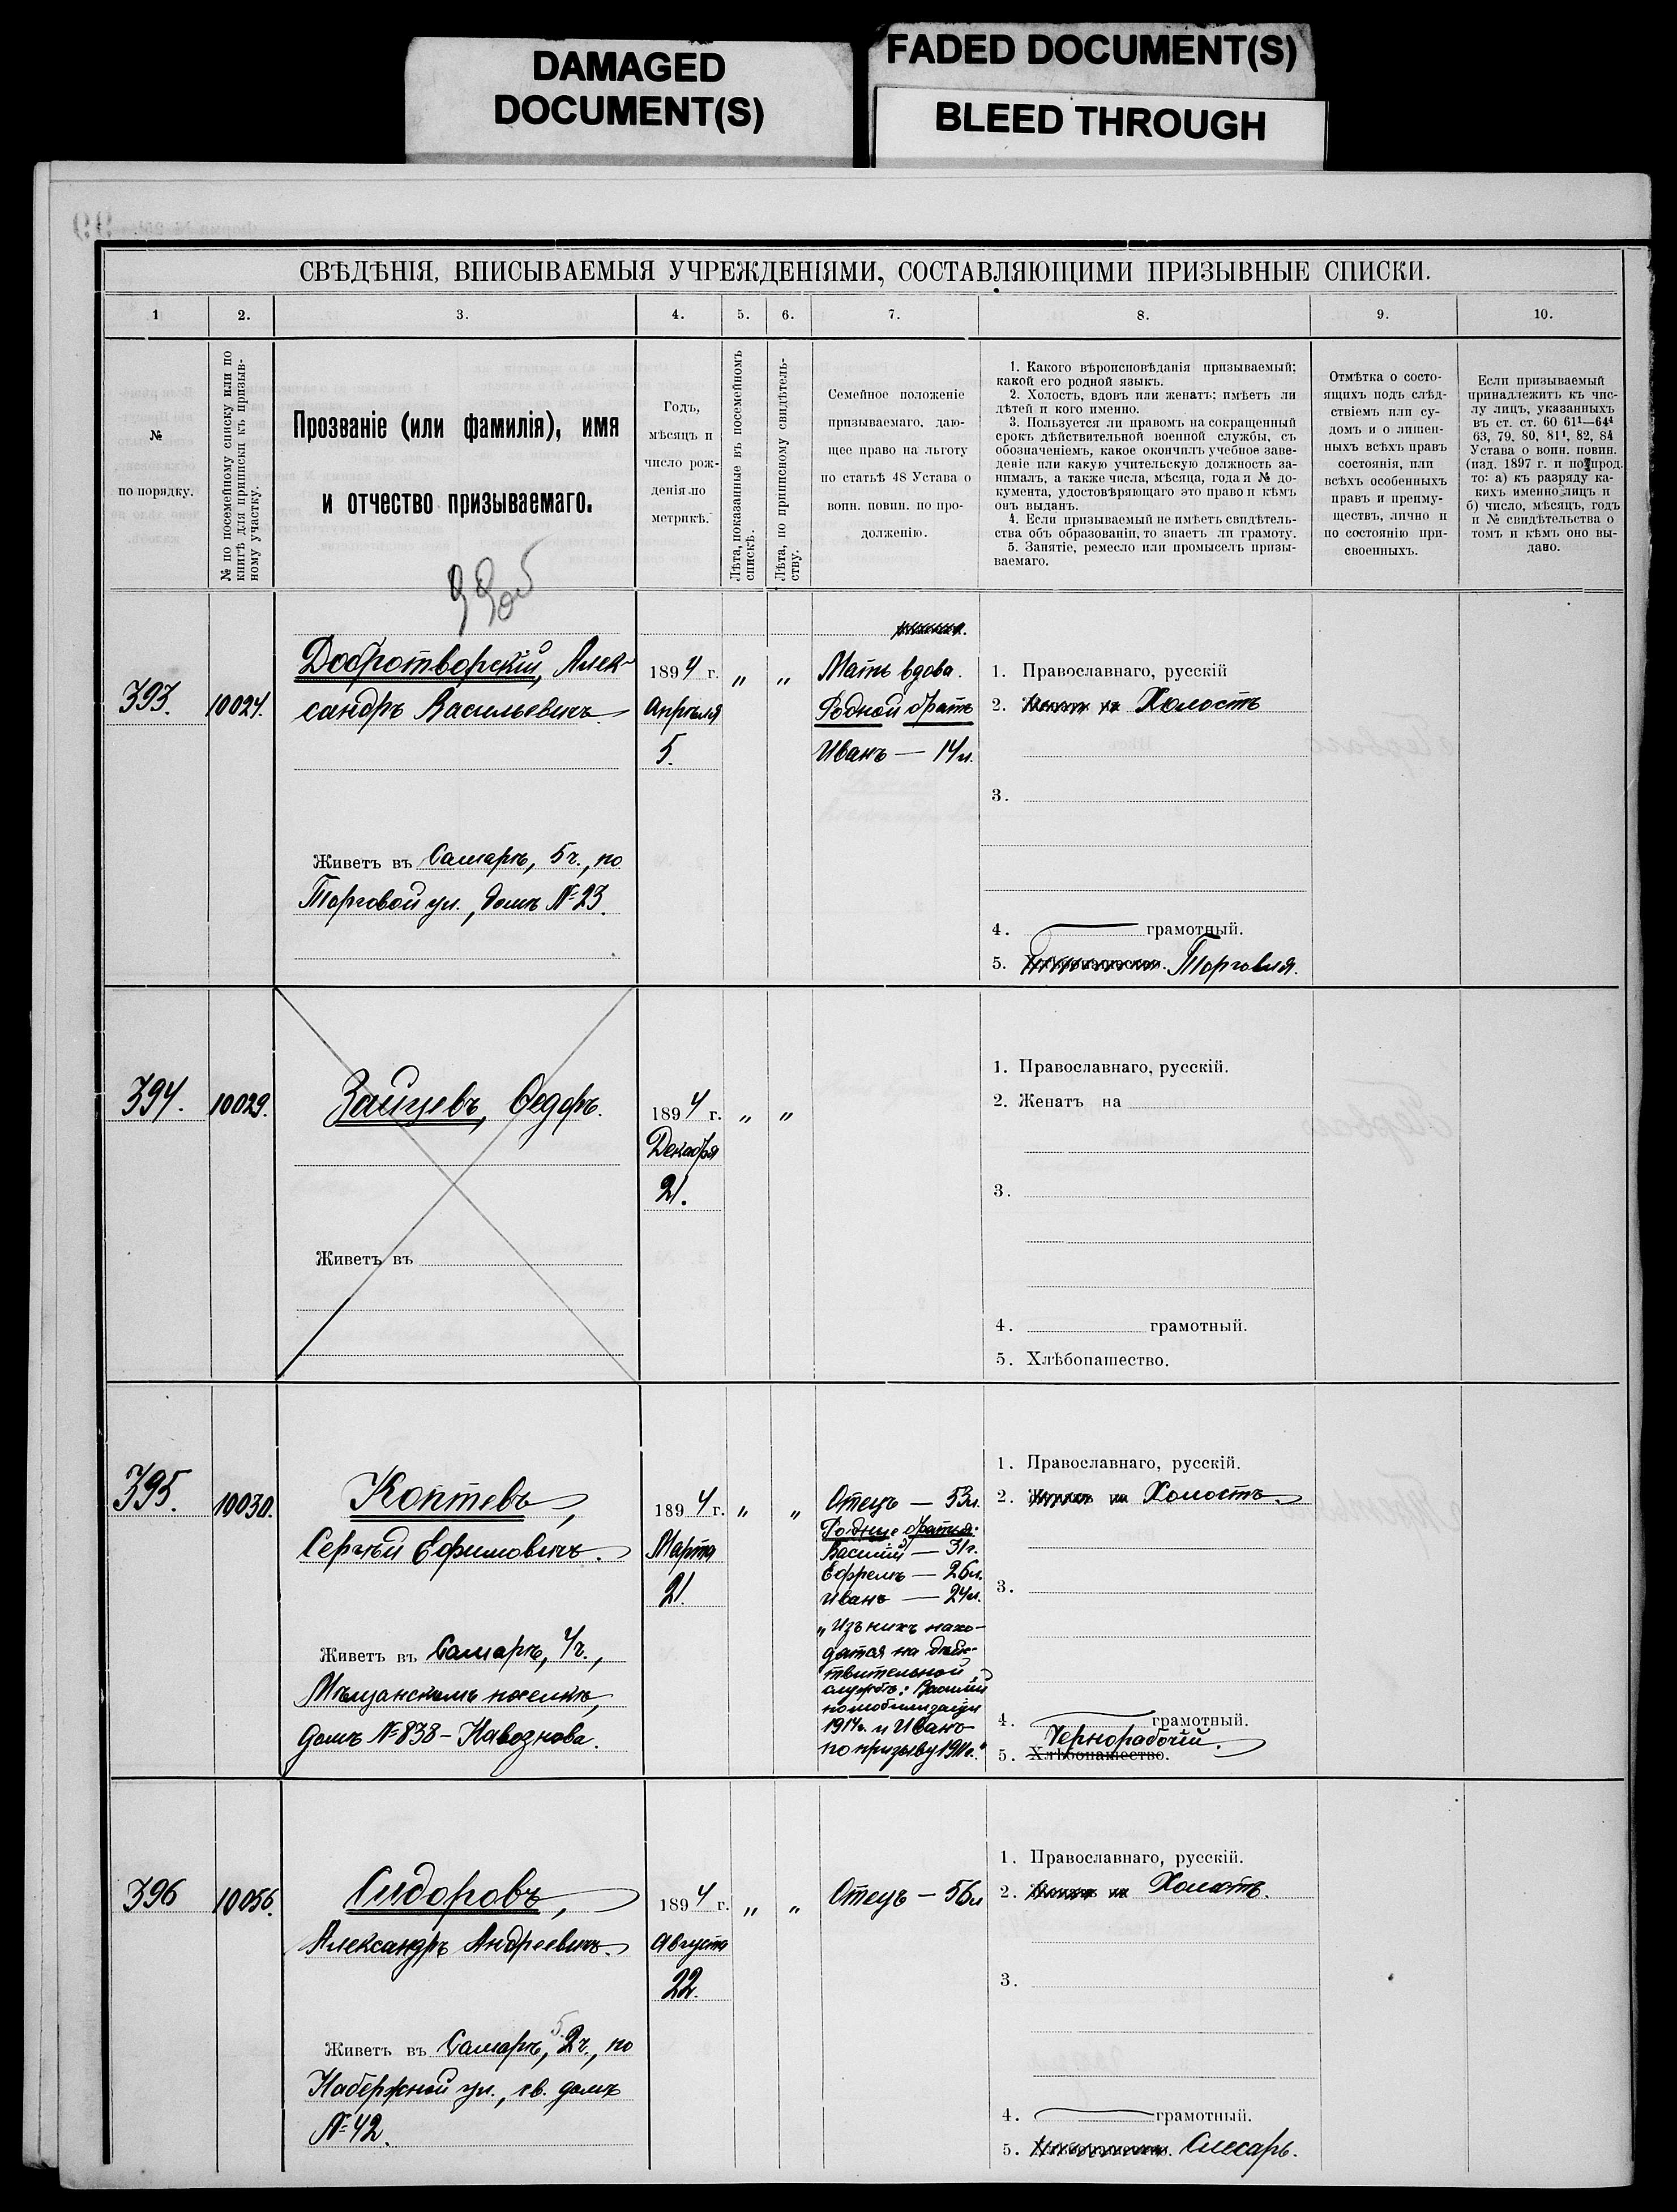 DAMAGED
DOCUMENT(S)
FADED DOCUMENT(S)
BLEED THROUGH
СВѢДѢНІЯ, ВПИСЫВАЕМЫЯ УЧРЕЖДЕНІЯМИ, СОСТАВЛЯЮЩИМИ ПРИЗЫВНЫЕ СПИСКИ.
1 2. 3. 4. 5. 6. 7. 8. 9. 10.
№
по порядку.
№ по посемейному списку или по
книгѣ для приписки къ призыв-
ному участку.
Прозваніе (или фамилія), имя
и отчество призываемаго.
Годъ,
мѣсяцъ и
число рож-
денія по
метрикѣ.
Лѣта, показанные въ посемейномъ
спискѣ.
Лѣта, по приписному свидѣтель-
ству.
Семейное положеніе
призываемаго, даю-
щее право на льготу
по статьѣ 48 Устава о
воин. повин. по про-
долженію.
1. Какого вѣроисповѣданія призываемый;
какой его родной языкъ.
2. Холостъ, вдовъ или женатъ; имѣетъ ли
дѣтей и кого именно.
3. Пользуется ли правомъ на сокращенный
срокъ дѣйствительной военной службы, съ
обозначеніемъ, какое окончилъ учебное заве-
деніе или какую учительскую должность за-
нималъ, а также числа, мѣсяца, года и № до-
кумента, удостовѣряющаго это право и кѣмъ
онъ выданъ.
4. Если призываемый не имѣетъ свидѣтель-
ства объ образованіи, то знаетъ ли грамоту.
5. Занятіе, ремесло или промыселъ призы-
ваемаго.
Отмѣтка о состо-
ящихъ подъ слѣд-
ствіемъ или су-
домъ и о лишен-
ныхъ всѣхъ правъ
состоянія, или
всѣхъ особенныхъ
правъ и преиму-
ществъ, лично и
по состоянію при-
своенныхъ.
Если призываемый
принадлежитъ къ чис-
лу лицъ, указанныхъ
въ ст. ст. 60 61¹—64⁴
63, 79, 80, 81¹, 82, 84
Устава о воин. повин.
(изд. 1897 г. и по прод.
то: а) къ разряду ка-
кихъ именно лицъ и
б) число, мѣсяцъ, годъ
и № свидѣтельства о
томъ и кѣмъ оно вы-
дано.
393.
10024.
Добротворскій, Алек-
сандръ Васильевичъ.
Живетъ въ Самарѣ, 5 ч., по
Торговой ул., домъ № 23.
1894 г.
Апрѣля
5.
„ „
Мать вдова.
Родной братъ
Иванъ — 14 л.
1. Православнаго, русскій
2. Холостъ
3.
4. грамотный.
5. Торговля.
394.
10029.
Зайцевъ, Ѳедоръ.
Живетъ въ
1894 г.
Декабря
21.
„ „
1. Православнаго, русскій.
2. Женатъ на
3.
4. грамотный.
5. Хлѣбопашество.
395.
10030.
Коптевъ,
Сергѣй Ефимовичъ.
Живетъ въ Самарѣ, 4 ч.,
Мѣщанскомъ поселкѣ,
домъ № 838 - Навознова.
1894 г.
Марта
21.
„ „
Отецъ — 53 л.
Родные братья:
Василій — 31 г.
Ефремъ — 26 л.
Иванъ — 24 л.
„Изъ нихъ нахо-
дятся на дѣй-
ствительной
службѣ: Василій
по мобилизаціи
1914 г. и Иванъ
по призыву 1911 г."
1. Православнаго, русскій.
2. Холостъ.
3.
4. грамотный.
Чернорабочій.
5. Хлѣбопашество.
396
10056.
Сидоровъ,
Александръ Андреевичъ.
Живетъ въ Самарѣ, 2 ч., по
Набержной ул., св. домъ
№ 42.
1894 г.
Августа
22.
„ „
Отецъ — 56 л
1. Православнаго, русскій.
2. Холостъ.
3.
4. грамотный.
5. Слесарь.